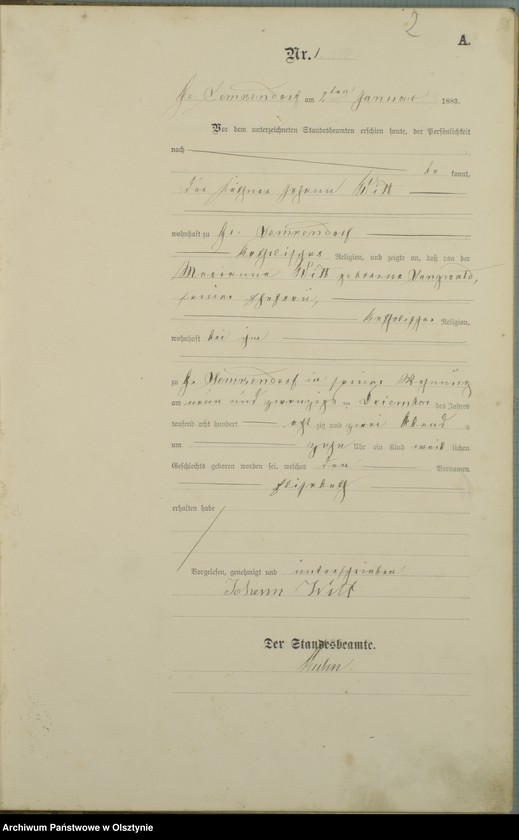 2
A.
Nr. 1
Gr. am 2ten Januar 1883.
Vor dem unterzeichneten Standesbeamten erschien heute, der Persönlichkeit
nach
be kannt,
der Johann Witt
wohnhaft zu Gr.
katholischer Religion, und zeigte an, daß von der
Marianna Witt geborene
seiner Ehefrau,
katholischer Religion,
wohnhaft bei ihm
zu Gr. in seiner Wohnung
am neun und zwanzigsten Dezember des Jahres
tausend acht hundert acht zig und zwei Abend s
um zehn Uhr ein Kind weib lichen
Geschlechts geboren worden sei, welches den Vornamen
Elisabeth
erhalten habe
Vorgelesen, genehmigt und unterschrieben
Johann Witt
Der Standesbeamte.
Archiwum Państwowe w Olsztynie